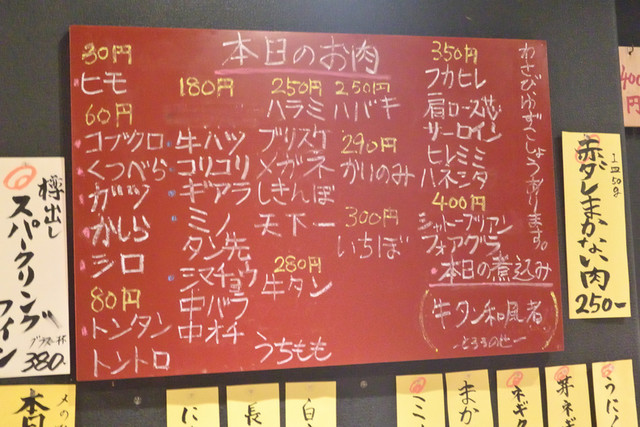 本日のお肉
30円
ヒモ
60円
コブクロ
くつべら
ガツ
かしら
シロ
80円
トンタン
トントロ
180円
牛ハツ
コリコリ
ギアラ
ミノ
タン先
シマチョウ
中バラ
中オチ
250円
ハラミ
ブリスケ
メガネ
しきんぼ
天下一
280円
牛タン
うちもも
250円
ハバキ
290円
かいのみ
300円
いちぼ
350円
フカヒレ
肩ロース芯
サーロイン
ヒレミミ
ハネシタ
400円
シャトーブリアン
フォアグラ
本日の煮込み
牛タン和風煮
わさび、ゆずこしょうあります。
樽出し
スパークリング
ワイン
グラス一杯
380.
赤ダレまかない肉
1皿50g
250-
400
円
本日
長
まか
ネギ
芽ネギ